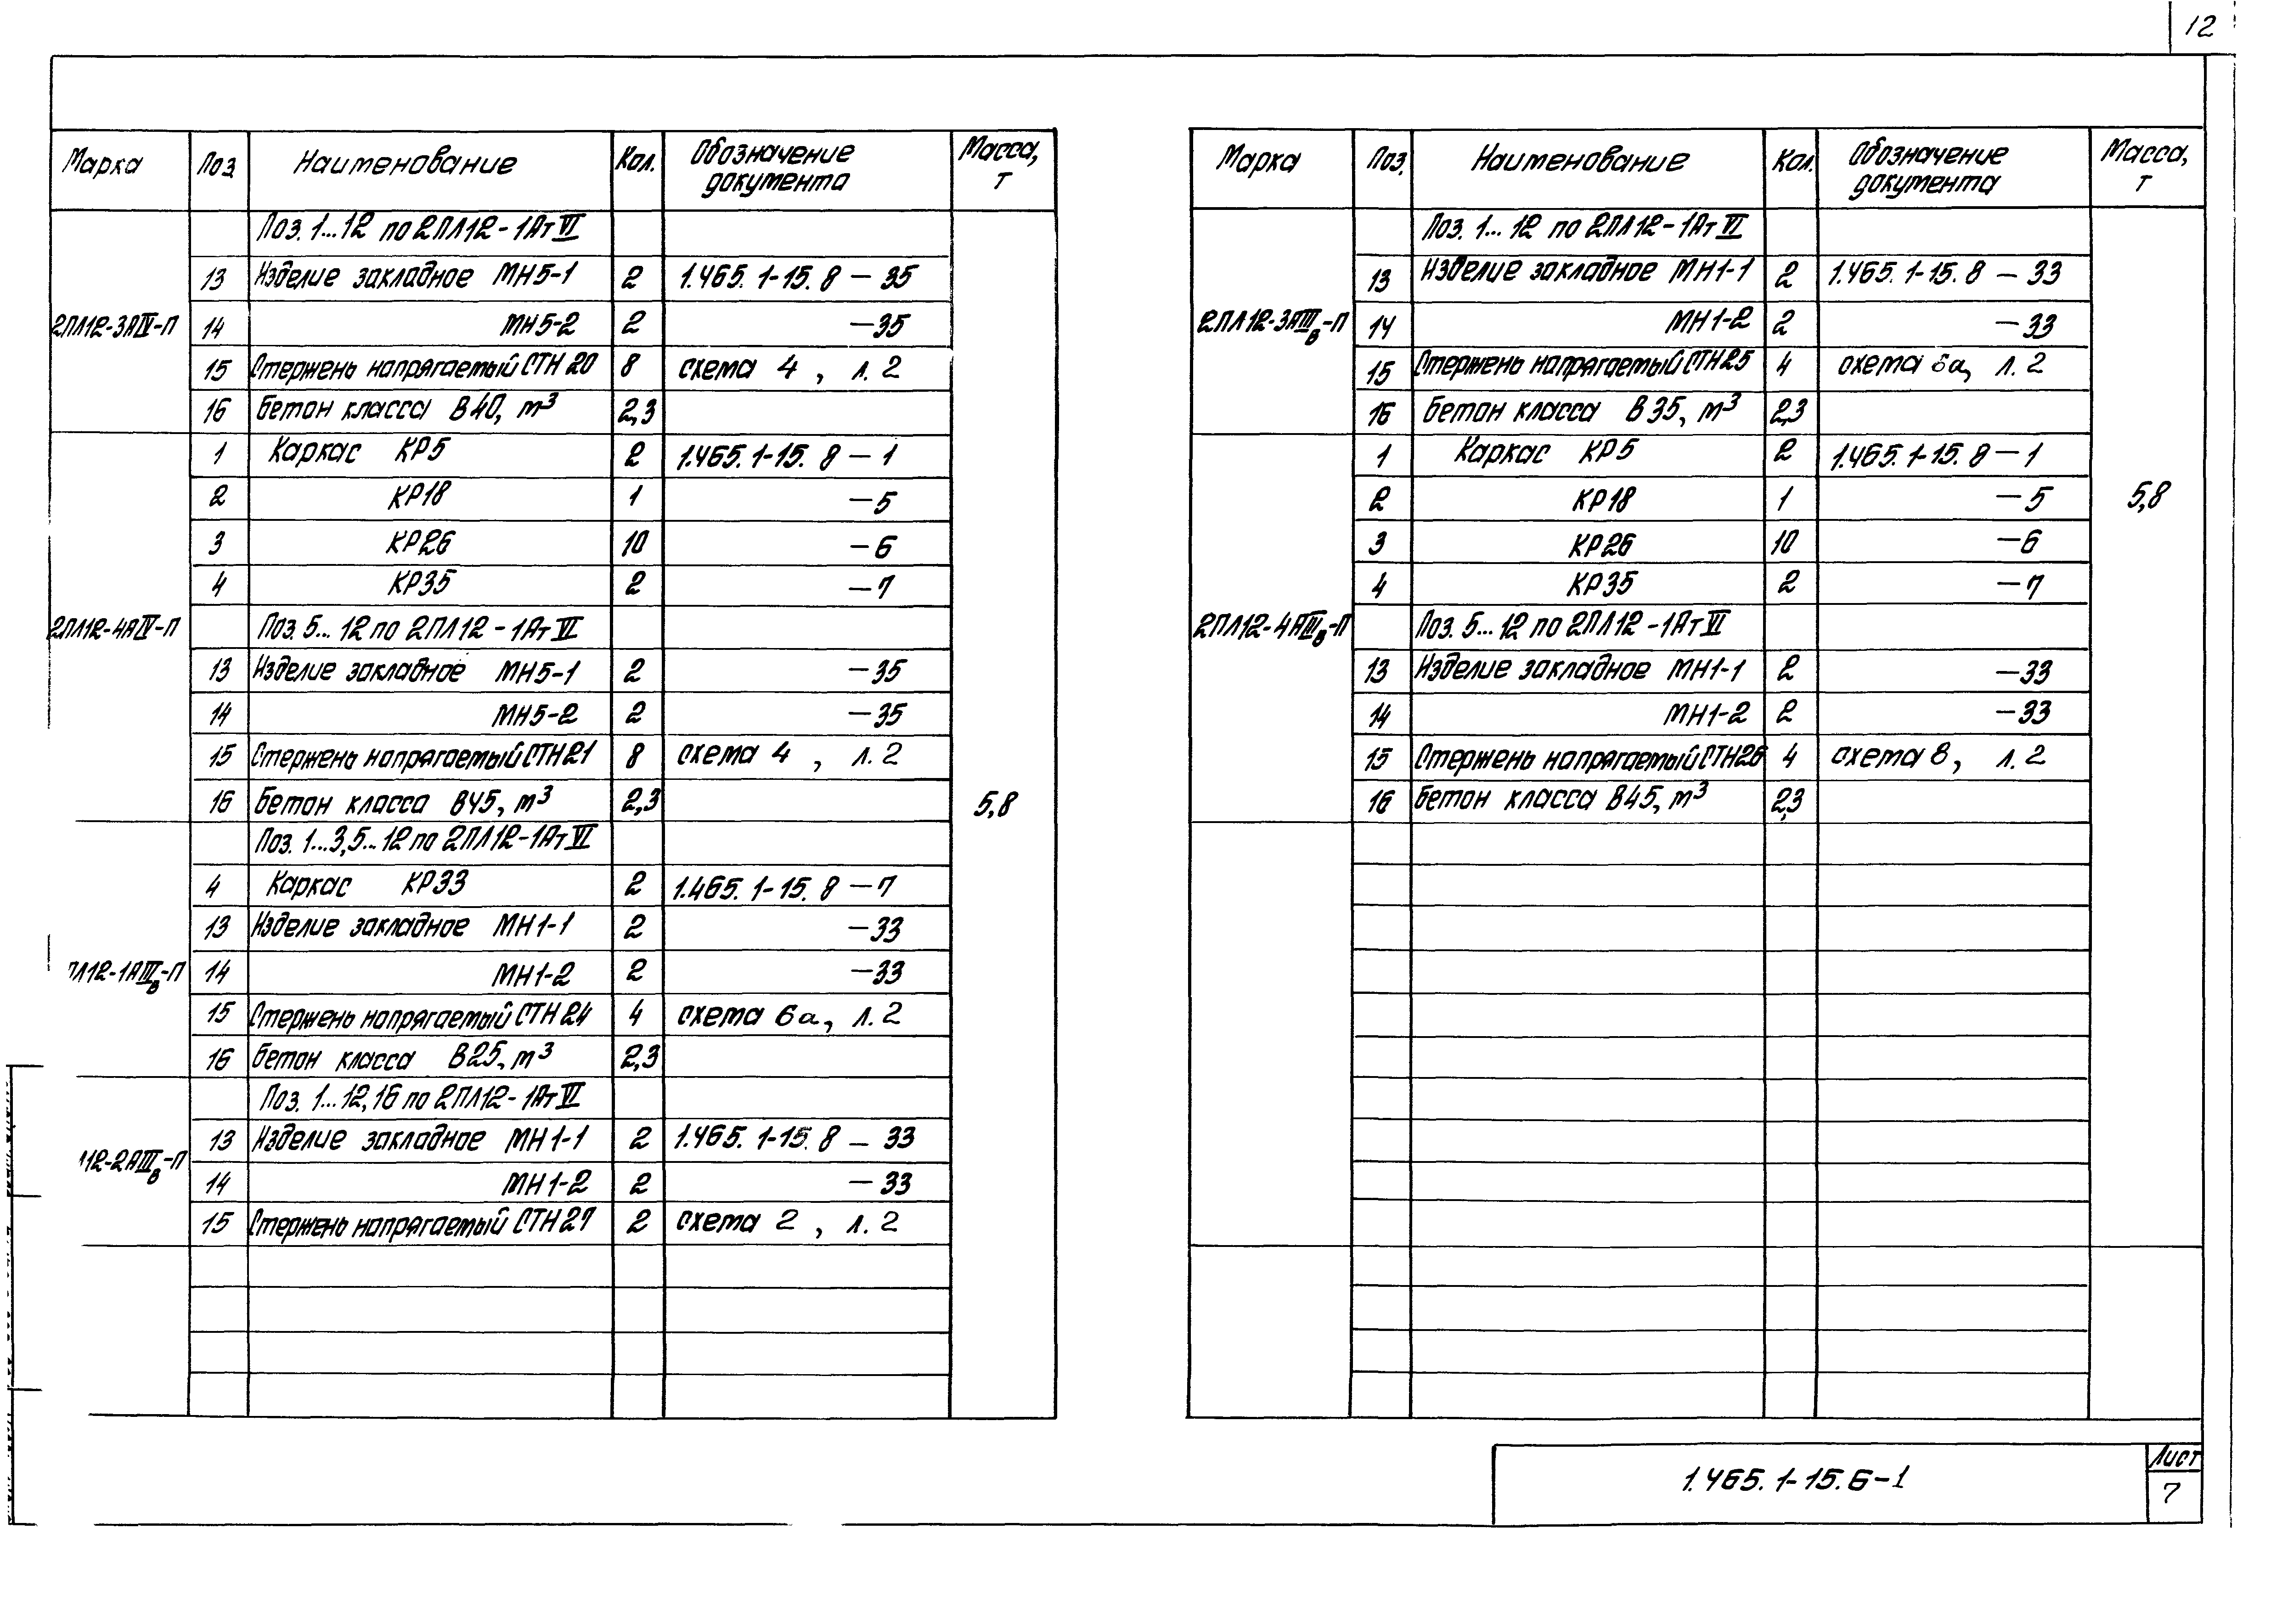 12
Марка Поз. Наименование Кол. Обозначение документа Масса, т
Поз. 1...12 по 2ПЛ12-1АтVI
13 Изделие закладное МН5-1 2 1.465.1-15.8 – 35
2ПЛ12-3АIV-П 14 МН5-2 2 –35
15 Стержень напрягаемый СТН20 8 схема 4, л. 2
16 Бетон класса В40, м³ 2,3
1 Каркас КР5 2 1.465.1-15.8 – 1
2 КР18 1 –5
3 КР26 10 –6
4 КР35 2 –7
2ПЛ12-4АIV-П Поз. 5...12 по 2ПЛ12-1АтVI
13 Изделие закладное МН5-1 2 –35
14 МН5-2 2 –35
15 Стержень напрягаемый СТН21 8 схема 4, л. 2
16 Бетон класса В45, м³ 2,3 5,8
Поз. 1...3,5...12 по 2ПЛ12-1АтVI
4 Каркас КР33 2 1.465.1-15.8 –7
13 Изделие закладное МН1-1 2 –33
ПЛ12-1АIIIв-П 14 МН1-2 2 –33
15 Стержень напрягаемый СТН24 4 схема 6а, л. 2
16 Бетон класса В25, м³ 2,3
Поз. 1...12,16 по 2ПЛ12-1АтVI
13 Изделие закладное МН1-1 2 1.465.1-15.8 – 33
12-2АIIIв-П 14 МН1-2 2 – 33
15 Стержень напрягаемый СТН27 2 схема 2, л. 2
Марка Поз. Наименование Кол. Обозначение документа Масса, т
Поз. 1...12 по 2ПЛ12-1АтVI
13 Изделие закладное МН1-1 2 1.465.1-15.8 – 33
2ПЛ12-3АIIIв-П 14 МН1-2 2 –33
15 Стержень напрягаемый СТН25 4 схема л. 2
16 Бетон класса В35, м³ 2,3
1 Каркас КР5 2 1.465.1-15.8 – 1
2 КР18 1 –5 5,8
3 КР26 10 –6
4 КР35 2 –7
2ПЛ12-4АIIIв-П Поз. 5...12 по 2ПЛ12-1АтVI
13 Изделие закладное МН1-1 2 –33
14 МН1-2 2 –33
15 Стержень напрягаемый СТН26 4 схема 8, л. 2
16 Бетон класса В45, м³ 2,3
1.465.1-15.6-1
Лист
7